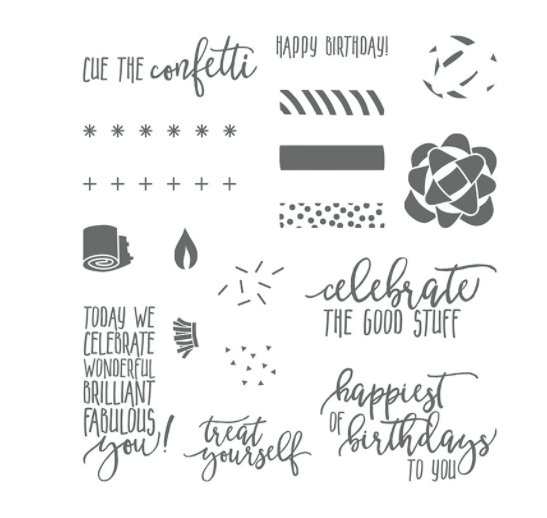 CUE THE confetti
HAPPY BIRTHDAY!
celebrate
THE GOOD STUFF
TODAY WE
CELEBRATE
WONDERFUL
BRILLIANT
FABULOUS
you!
treat
yourself
happiest
OF birthdays
TO YOU